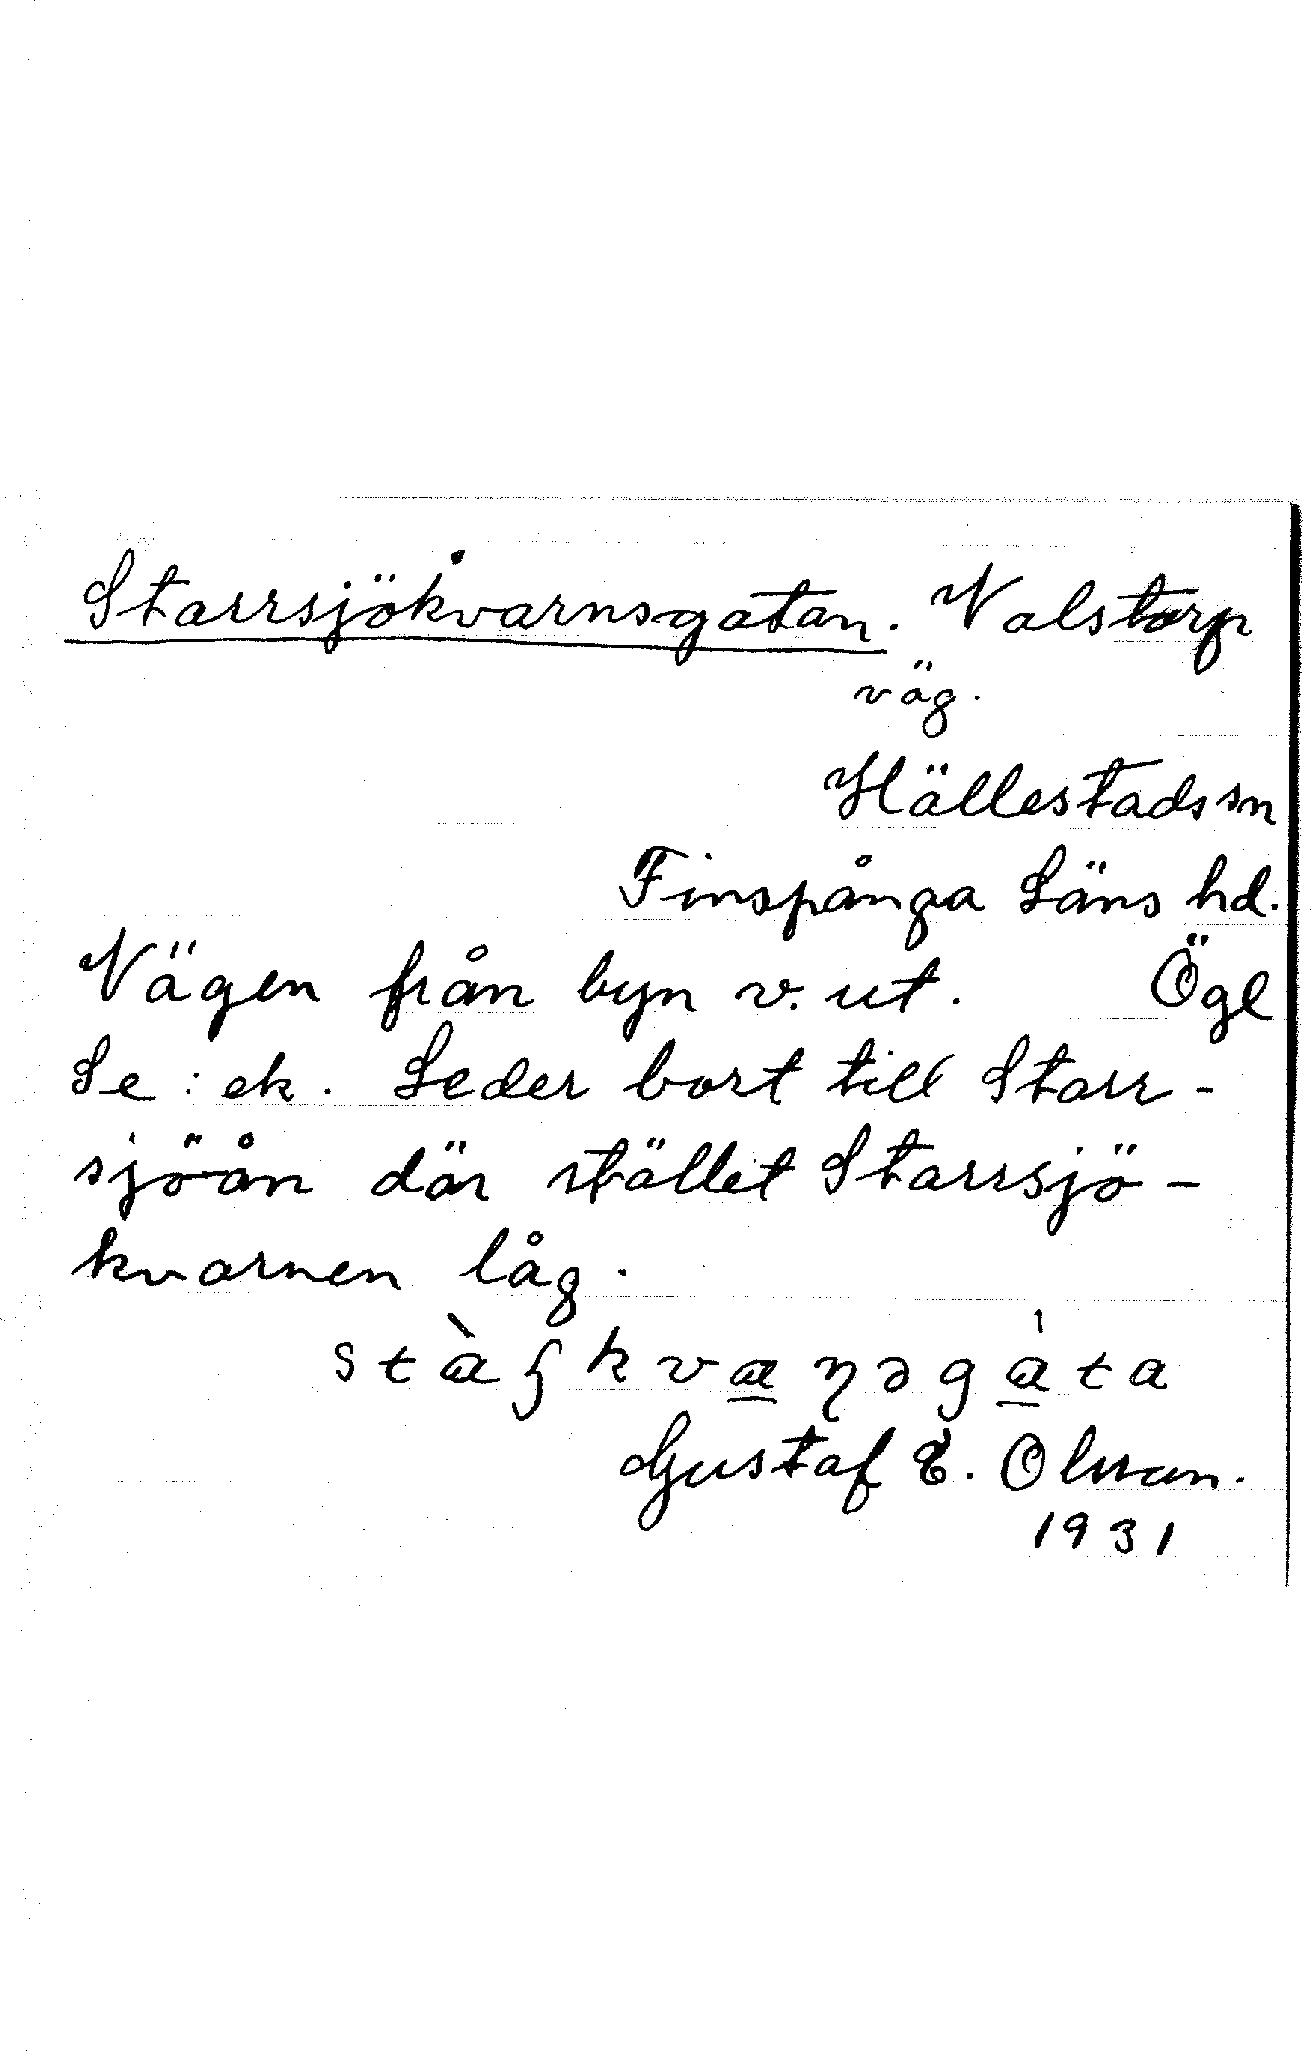 Starrsjökvarnsgatan. Valstorp
väg.
Hällestads sn
Finspånga Läns hd.
Vägen från byn v. ut. Ögl
Se: ek. Leder bort till Starr-
sjöån där stället Starrsjö-
kvarnen låg.
Gustaf E. Olsson.
1931